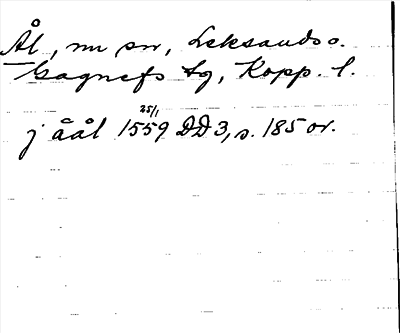 Ål, nu sn, Leksands o.
Gagnefs tg, Kopp. l.
j åål 1559 25/1 DD 3, s. 185 or.